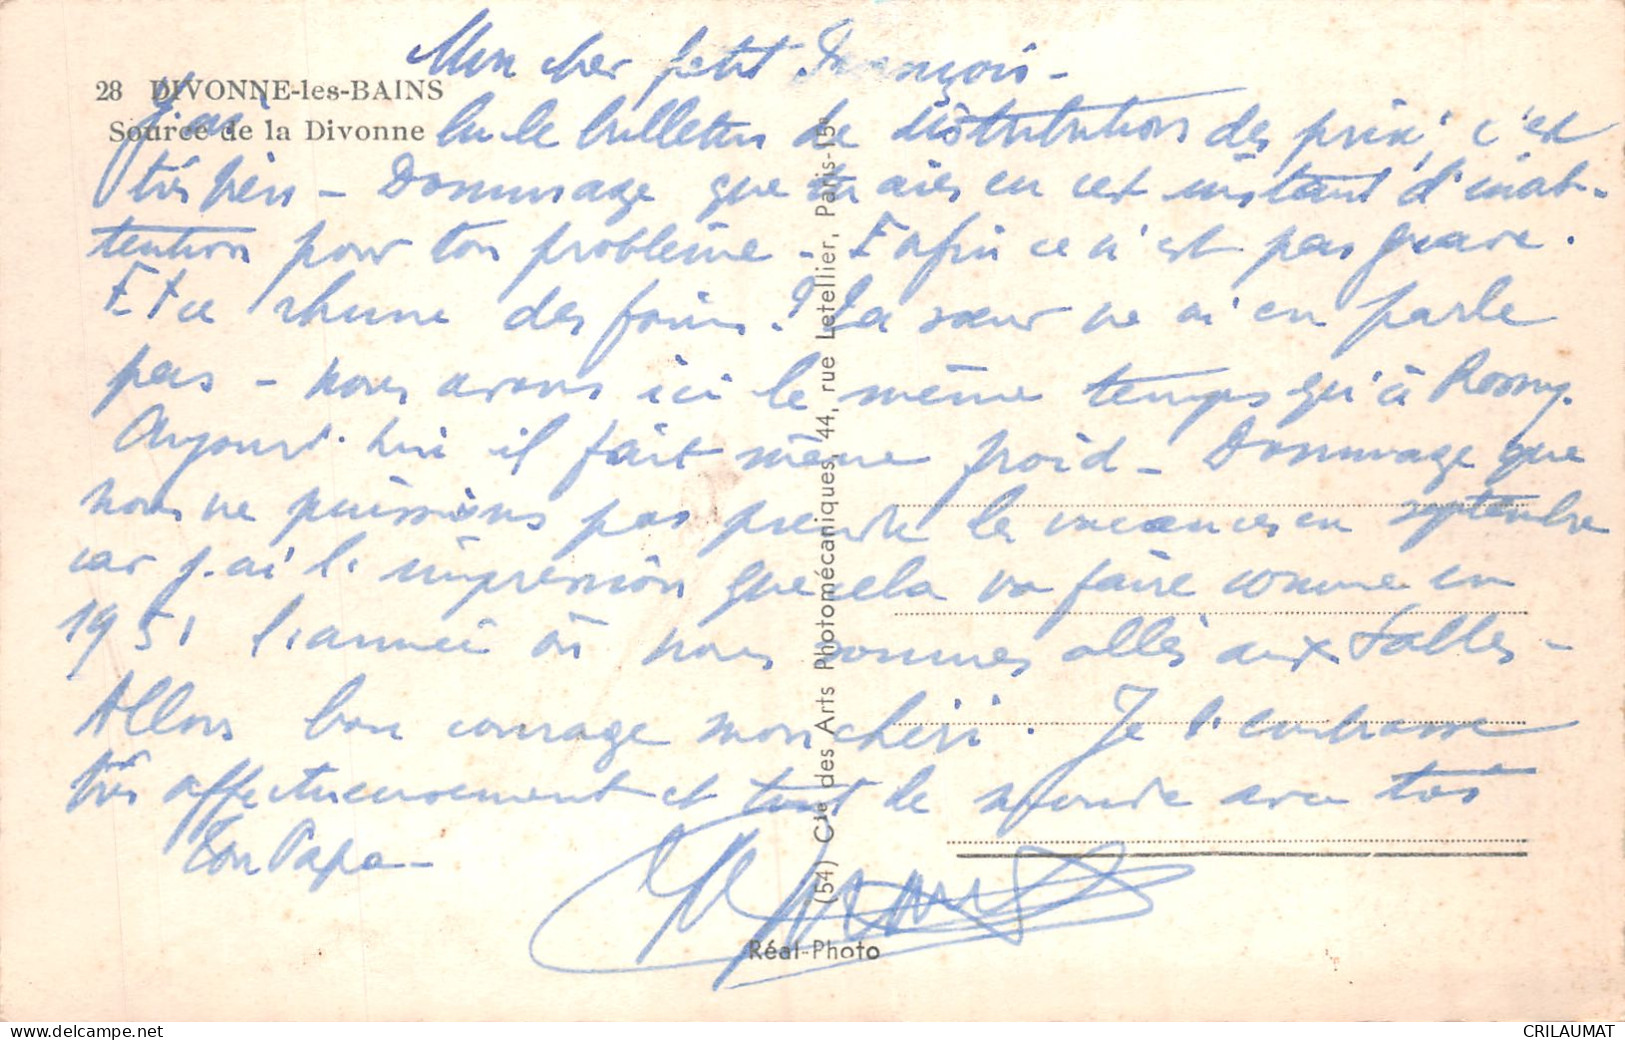 Mon cher petit François -
28 DIVONNE-les-BAINS
Source de la Divonne
J'ai lu le bulletin de distribution des prix, c'est
très bien - Dommage que tu aies eu cet instant d'inat-
tention pour ton problème - Enfin ce n'est pas grave.
Et ce rhume des foins ? Ta sœur ne m'en parle
pas - nous avons ici le même temps qu'à Rosny.
Aujourd'hui il fait même froid - Dommage que
nous ne puissions pas prendre les vacances en septembre
car j'ai l'impression que cela va faire comme en
1951 l'année où nous sommes allés aux Salles -
Allons bon courage mon chéri. Je t'embrasse
très affectueusement et tout le monde avec toi
Ton Papa -
(54) Cie des Arts Photomécaniques, 44, rue Letellier, Paris-15e
Réal-Photo
www.delcampe.net
CRILAUMAT